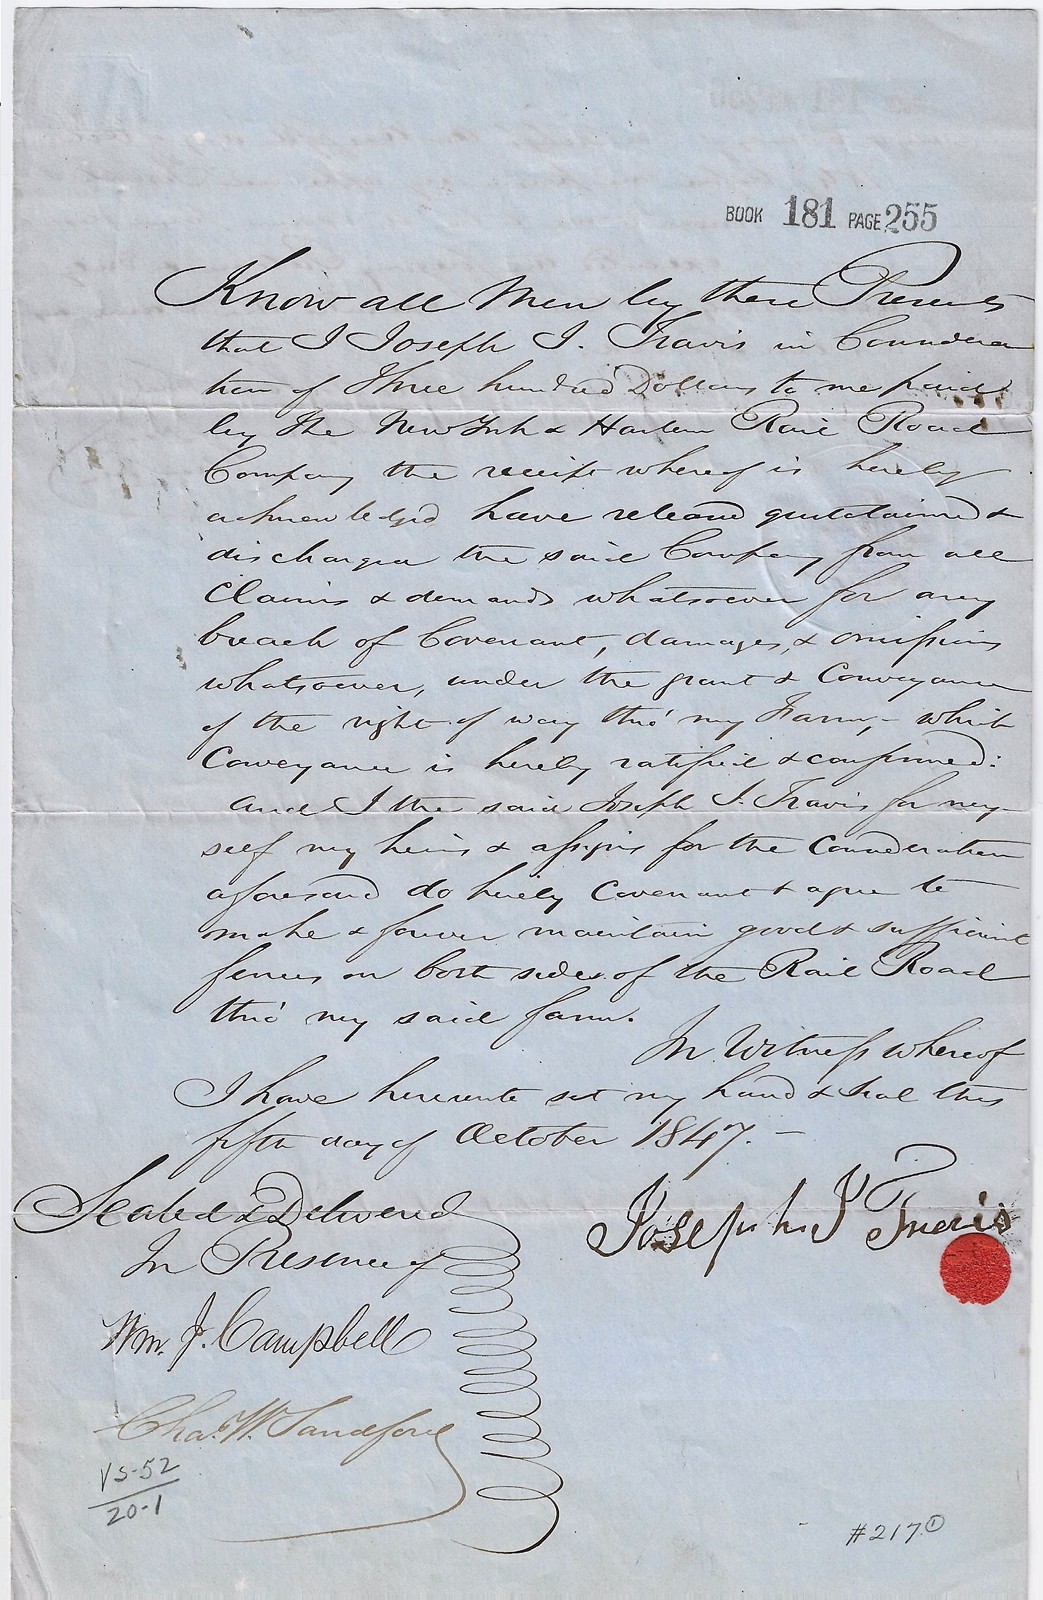 BOOK 181 PAGE 255
Know all Men by these Presents
that I Joseph J. Travis in Considera
tion of Three hundred Dollars to me paid
by The New York & Harlem Rail Road
Company the receipt whereof is hereby
acknowledged have released quitclaimed &
discharged the said Company from all
Claims & demands whatsoever for any
breach of Covenant, damages, & omissions
whatsoever, under the grant & Conveyance
of the right of way thro' my Farm, - which
Conveyance is hereby ratified & confirmed:
And I the said Joseph J. Travis for my-
self my heirs & assigns for the Consideration
aforesaid do hereby Covenant & agree to
make & forever maintain good & sufficient
fences on both sides of the Rail Road
thro' my said farm.
In Witness whereof
I have hereunto set my hand & seal this
fifth day of October 1847. -
Sealed & Delivered
In Presence of
Joseph J Traviss
Wm. J. Campbell
Chas. W. Sandford
VS-52
20-1
#217 1